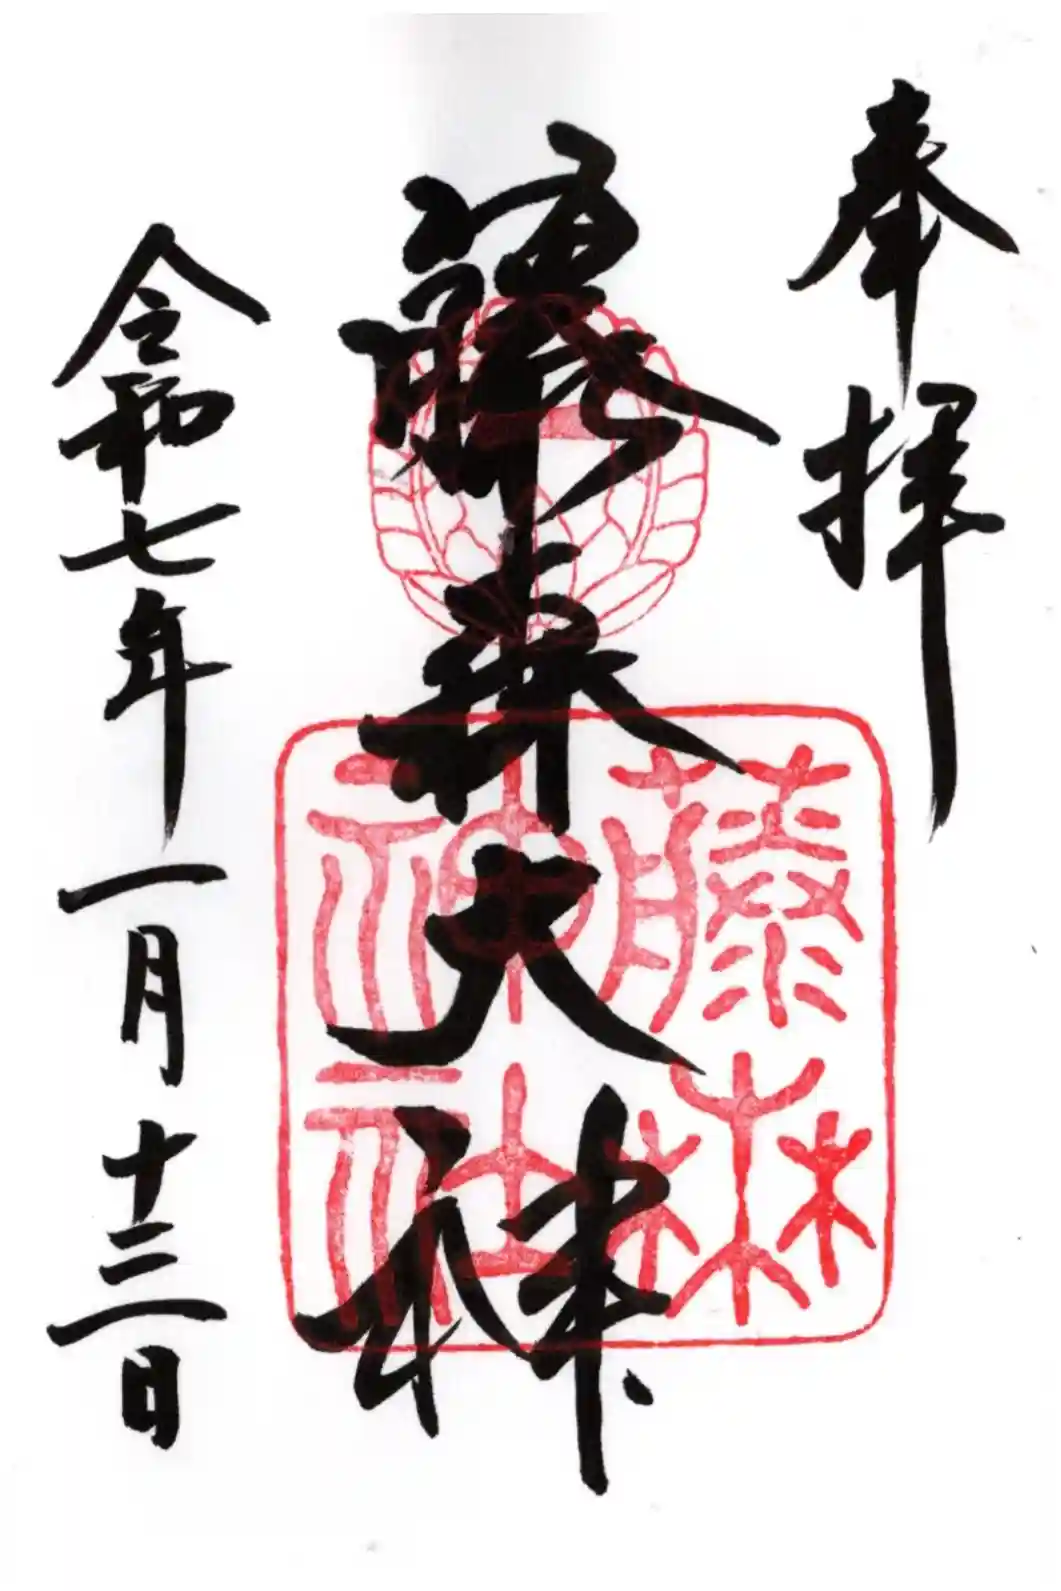 奉拝
藤森大神
藤森神社
令和七年一月十三日